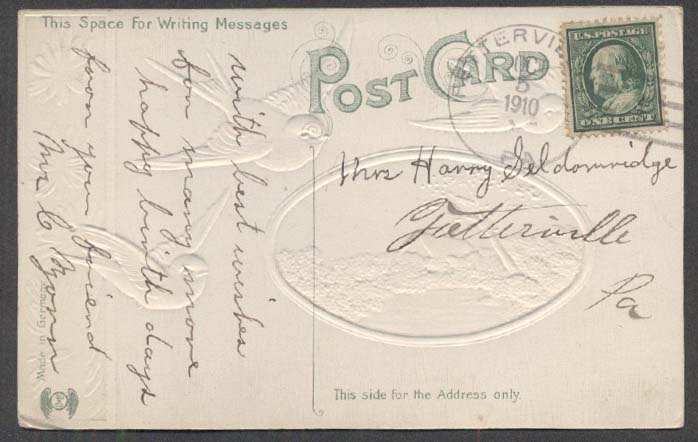 This Space For Writing Messages
POST CARD
U.S. POSTAGE
ONE CENT
5
1910
PA.
with best wishes
for many more
happy birth days
from you friend
Mrs C
Mrs Harry Seldomridge
Fetterville
Pa
Made in Germany
This side for the Address only.